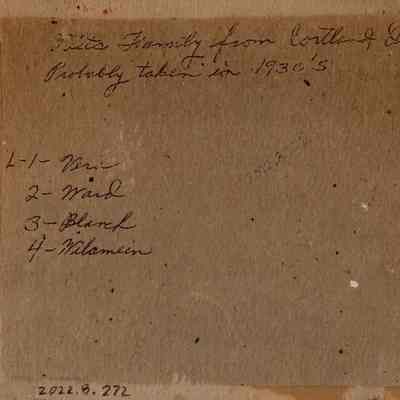 Family from Cortland
Probably taken in 1930's
L-1- Vern
2- Ward
3- Blanch
4- Wilamein
2022.8.272